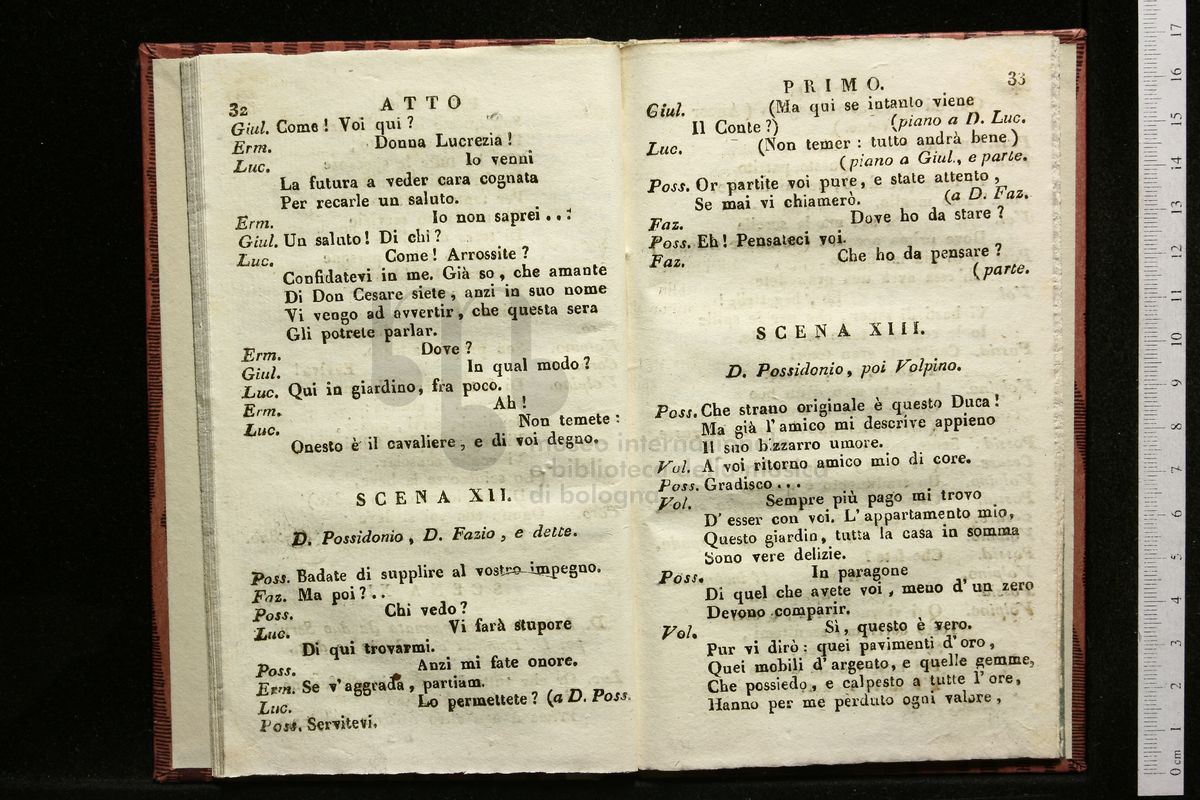 32
ATTO
Giul. Come! Voi qui?
Erm. Donna Lucrezia!
Luc. Io venni
La futura a veder cara cognata
Per recarle un saluto.
Erm. Io non saprei...
Giul. Un saluto! Di chi?
Luc. Come! Arrossite?
Confidatevi in me. Già so, che amante
Di Don Cesare siete, anzi in suo nome
Vi vengo ad avvertir, che questa sera
Gli potrete parlar.
Erm. Dove?
Giul. In qual modo?
Luc. Qui in giardino, fra poco.
Erm. Ah!
Luc. Non temete:
Onesto è il cavaliere, e di voi degno.
SCENA XII.
D. Possidonio, D. Fazio, e dette.
Poss. Badate di supplire al vostro impegno.
Faz. Ma poi?..
Poss. Chi vedo?
Luc. Vi farà stupore
Di qui trovarmi.
Poss. Anzi mi fate onore.
Erm. Se v'aggrada, partiam.
Luc. Lo permettete? (a D. Poss.
Poss. Servitevi.
PRIMO.
33
Giul. (Ma qui se intanto viene
Il Conte?) (piano a D. Luc.
Luc. (Non temer: tutto andrà bene)
(piano a Giul., e parte.
Poss. Or partite voi pure, e state attento,
Se mai vi chiamerò. (a D. Faz.
Faz. Dove ho da stare?
Poss. Eh! Pensateci voi.
Faz. Che ho da pensare?
(parte.
SCENA XIII.
D. Possidonio, poi Volpino.
Poss. Che strano originale è questo Duca!
Ma già l'amico mi descrive appieno
Il suo bizzarro umore.
Vol. A voi ritorno amico mio di core.
Poss. Gradisco...
Vol. Sempre più pago mi trovo
D'esser con voi. L'appartamento mio,
Questo giardin, tutta la casa in somma
Sono vere delizie.
Poss. In paragone
Di quel che avete voi, meno d'un zero
Devono comparir.
Vol. Sì, questo è vero.
Pur vi dirò: quei pavimenti d'oro,
Quei mobili d'argento, e quelle gemme,
Che possiedo, e calpesto a tutte l'ore,
Hanno per me perduto ogni valore,
museo internazionale
e biblioteca della musica
di bologna
0 cm 1 2 3 4 5 6 7 8 9 10 11 12 13 14 15 16 17